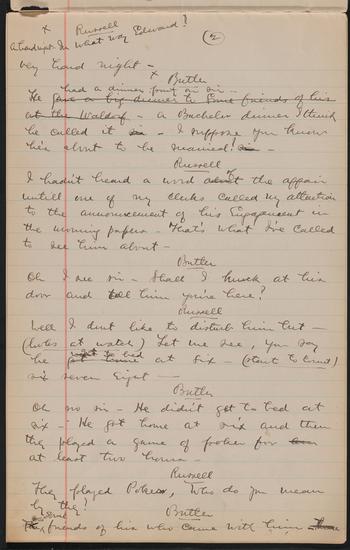 x Russell
A hard night. In what way Edward?
(2)
very hard night –
x Butler
had a dinner
He gave a big dinner to some friends of his
at the Waldorf – a Bachelor dinner I think
he called it sir – I suppose you know
he's about to be married! sir –
Russell
I hadn't heard a word about the affair
untill one of my clerks called my attention
to the announcement of his Engagement in
the morning papers – That's what I've called
to see him about –
Butler
Oh I see sir – Shall I knock at his
door and tell him you're here?
Russell
Well I dont like to disturb him but –
(looks at watch) Let me see, you say
went to bed
he got home at six – (starts to count)
six seven Eight –
Butler
Oh no sir – He didn't get to bed at
six – He got home at six and then
they played a game of poker for
at least two hours –
Russell
They played Poker, Who do you mean
by they?
Butler
Some
friends of his who came with him